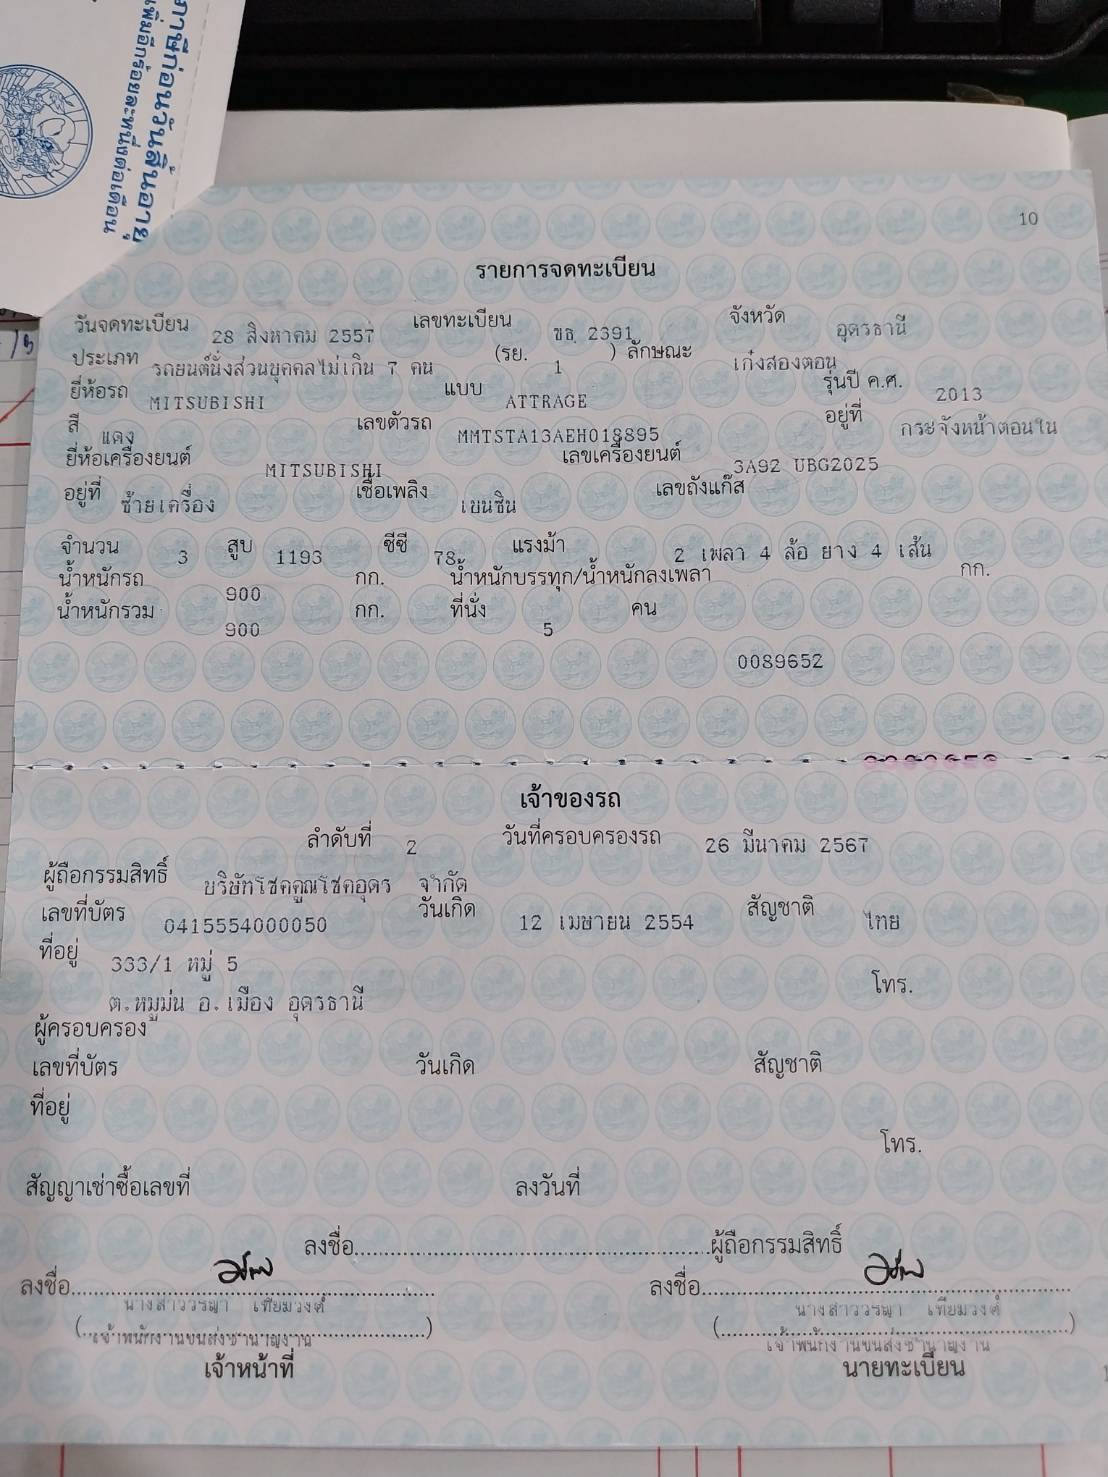 ภาษีก่อนวันสิ้นอายุ
เพิ่มอีกร้อยละหนึ่งต่อเดือน
10
รายการจดทะเบียน
วันจดทะเบียน 28 สิงหาคม 2557 เลขทะเบียน ขธ 2391 จังหวัด อุดรธานี
ประเภท รถยนต์นั่งส่วนบุคคลไม่เกิน 7 คน (รย. 1 ) ลักษณะ เก๋งสองตอน
ยี่ห้อรถ MITSUBISHI แบบ ATTRAGE รุ่นปี ค.ศ. 2013
สี แดง เลขตัวรถ MMTSTA13AEH018895 อยู่ที่ กระจังหน้าตอนใน
ยี่ห้อเครื่องยนต์ MITSUBISHI เลขเครื่องยนต์ 3A92 UBG2025
อยู่ที่ ซ้ายเครื่อง เชื้อเพลิง เบนซิน เลขถังแก๊ส
จำนวน 3 สูบ 1193 ซีซี 78 แรงม้า 2 เพลา 4 ล้อ ยาง 4 เส้น
น้ำหนักรถ 900 กก. น้ำหนักบรรทุก/น้ำหนักลงเพลา กก.
น้ำหนักรวม 900 กก. ที่นั่ง 5 คน
0089652
เจ้าของรถ
ลำดับที่ 2 วันที่ครอบครองรถ 26 มีนาคม 2567
ผู้ถือกรรมสิทธิ์ บริษัทโชคคูณโชคอุดร จำกัด
เลขที่บัตร 0415554000050 วันเกิด 12 เมษายน 2554 สัญชาติ ไทย
ที่อยู่ 333/1 หมู่ 5
โทร.
ต.หมูม่น อ.เมือง อุดรธานี
ผู้ครอบครอง
เลขที่บัตร วันเกิด สัญชาติ
ที่อยู่
โทร.
สัญญาเช่าซื้อเลขที่ ลงวันที่
ลงชื่อ ผู้ถือกรรมสิทธิ์
ลงชื่อ ลงชื่อ
นางสาววรญา เทียมวงศ์ นางสาววรญา เทียมวงศ์
(เจ้าพนักงานขนส่งชำนาญงาน) (เจ้าพนักงานขนส่งชำนาญงาน)
เจ้าหน้าที่ นายทะเบียน